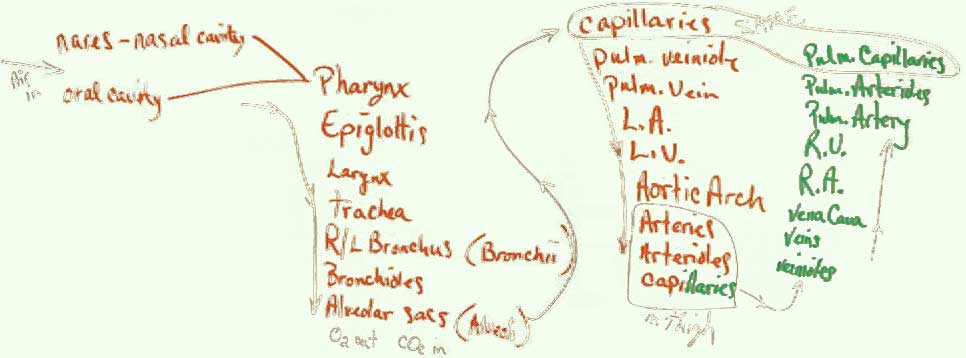 Air in
nares - nasal cavity
oral cavity
Pharynx
Epiglottis
Larynx
trachea
R/L Bronchus (Bronchii)
Bronchioles
Alveolar sacs (Alveoli)
O₂ out CO₂ in
Capillaries
pulm. veiniole
pulm. Vein
L.A.
L.V.
Aortic Arch
Arteries
Arterioles
Capillaries
in Thigh
SAME
Pulm. Capillaries
Pulm. Arterioles
Pulm. Artery
R.V.
R.A.
Vena Cava
Veins
veinioles